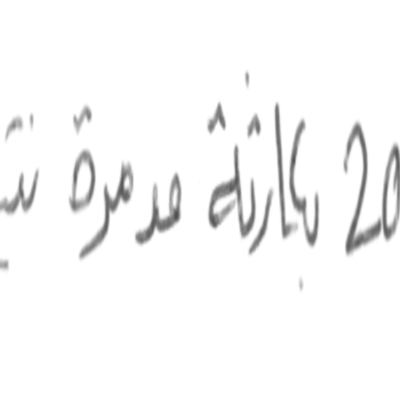 20 بكارثة مدمرة